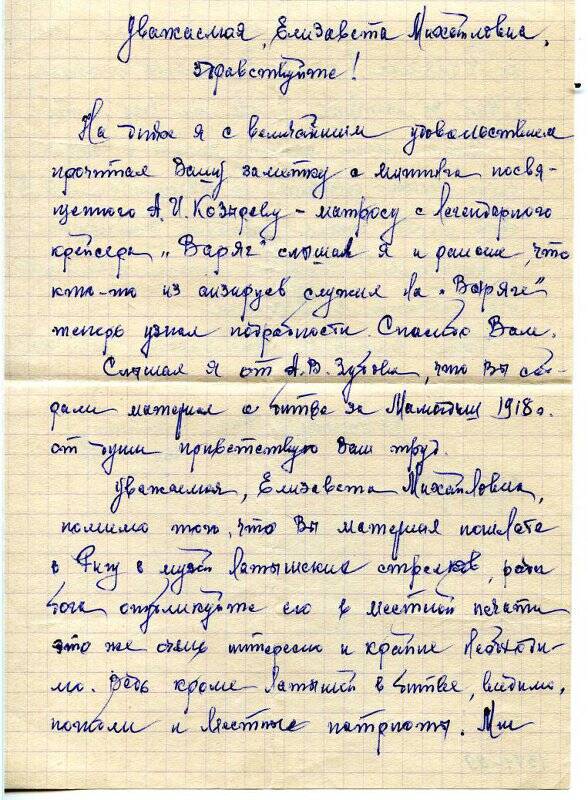 Уважаемая, Елизавета Михайловна,
здравствуйте!
На днях я с величайшим удовольствием
прочитал Вашу заметку о митинга посвя-
щенного А.И. Козыреву - матросу с легендарного
крейсера "Варяг" слышал я и раньше, что
кто-то из службы служил на "Варяге"
теперь узнал подробности. Спасибо Вам.
Слышал я от А.В. Зубова, что Вы со-
брали материал о битве за Мамадыш 1918 г.
от души приветствую Ваш труд.
Уважаемая, Елизавета Михайловна,
помимо того, что Вы материал пошлете
в Ригу в музей латышских стрелков, ради
бога опубликуйте его в местной печати
это же очень интересно и крайне необходи-
мо. Ведь кроме латышей в битве, видимо,
попали и местные патриоты. Мы